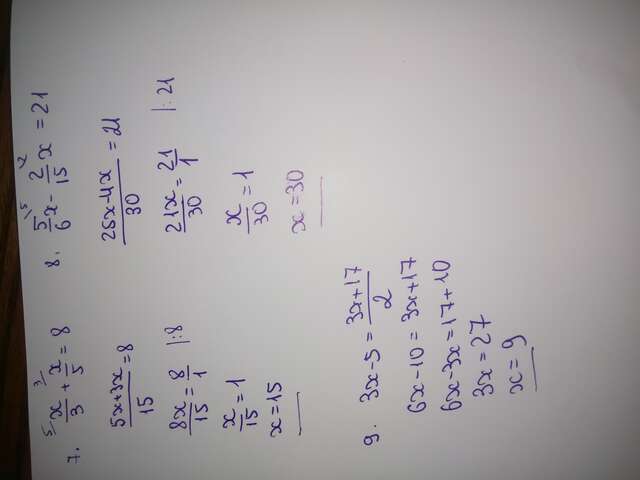 7. ⁵\ x/3 + ³\ x/5 = 8
(5x+3x)/15 = 8
8x/15 = 8/1 |:8
x/15 = 1
x = 15
8. ⁵\ 5/6 x - ²\ 2/15 x = 21
(25x-4x)/30 = 21
21x/30 = 21/1 |:21
x/30 = 1
x = 30
9. 3x-5 = (3x+17)/2
6x-10 = 3x+17
6x-3x = 17+10
3x = 27
x = 9